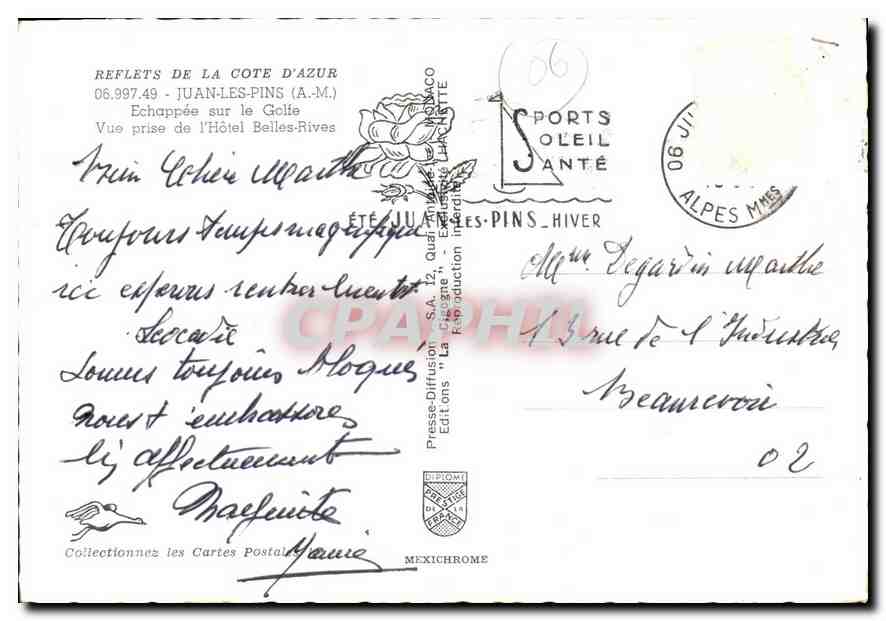 REFLETS DE LA COTE D'AZUR
06.997.49 - JUAN-LES-PINS (A.-M.)
Echappée sur le Golfe
Vue prise de l'Hôtel Belles-Rives
Bien Chère Marthe
Toujours temps magnifique
ici espérons rentrer bientôt
Léocadie
Sommes toujours bloqués
nous t'embrassons
bien affectueusement
Marguerite
Collectionnez les Cartes Postales
Presse-Diffusion S.A. 12, Quai Antoine 1er MONACO
Editions "La Cigogne" - Exclusivité HACHETTE
Reproduction interdite
DIPLOME
PRESTIGE
DE LA
FRANCE
MEXICHROME
06
SPORTS
SOLEIL
SANTÉ
ÉTÉ-JUAN-LES-PINS-HIVER
06 JU
ALPES MMES
Mme Degardin Marthe
13 rue de l'Industrie
Beaurevoir
02
CPAPHIL